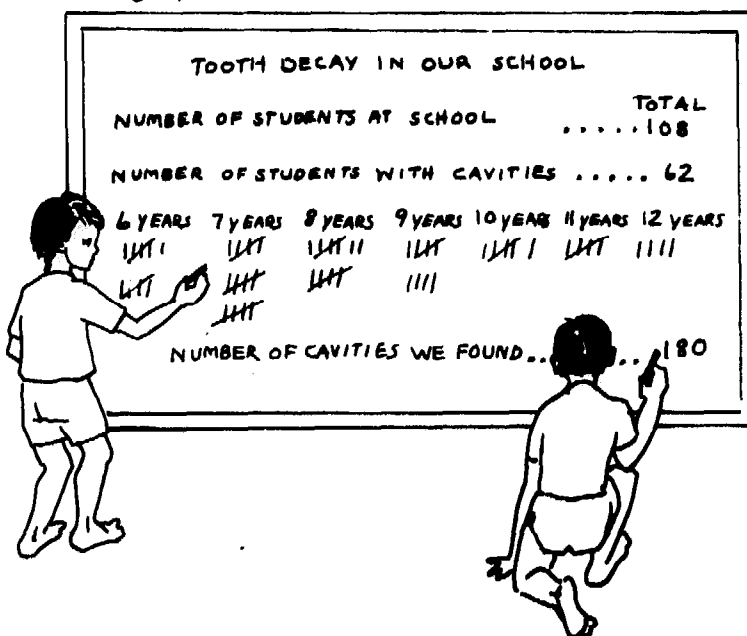 TOOTH DECAY IN OUR SCHOOL
TOTAL
NUMBER OF STUDENTS AT SCHOOL .....108
NUMBER OF STUDENTS WITH CAVITIES ..... 62
6 YEARS 7 YEARS 8 YEARS 9 YEARS 10 YEARS 11 YEARS 12 YEARS
NUMBER OF CAVITIES WE FOUND.. .. 180